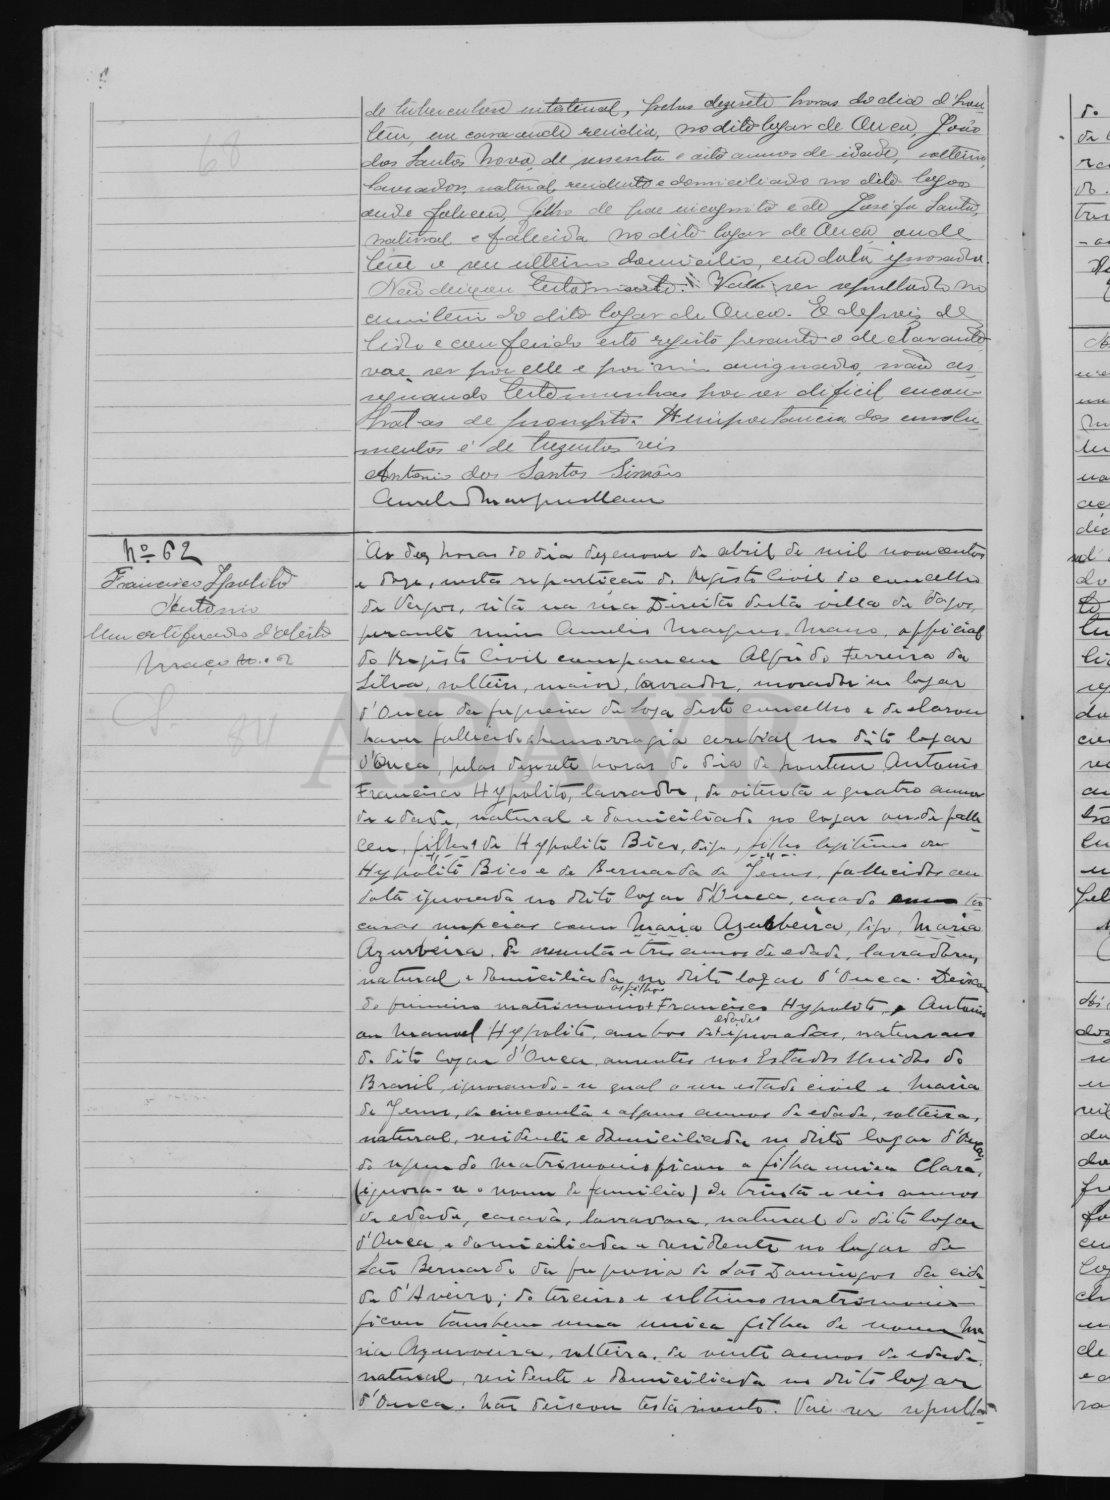 68
de tuberculose intestinal, pelas dezesete horas do dia d'hon
tem, em casa onde residia, no dito logar de Ouca, João
dos Santos Novo, de sesenta e oito annos de idade, solteiro,
lavrador, natural, residente e domiciliado no dito logar
onde faleceu, filho de pae incognito e de Josefa Santa,
natural e falecida no dito logar de Ouca, onde
teve o seu ultimo domicilio, em data ignorada.
Não deixou testamento. Vae ser sepultado no
cemiterio do dito logar de Ouca. E depois de
lido e conferido este registo perante o declarante
vae ser por elle e por mim assignado, não as
signando testemunhas por ser dificil encon
tral-as de prompto. A importancia dos emolu
mentos é de trezentos reis
Antonio dos Santos Simões
Aurelio Marques Mano
Nº 62
Francisco Hipolito
Antonio
Um certificado d'obito
Março no. 2
S. 84
As dez horas do dia dezenove de abril de mil novecentos
e doze, nesta repartição do Registo Civil do concelho
de Vagos, sita na rua Direita desta villa de Vagos,
perante mim Aurelio Marques Mano, official
do Registo Civil compareceu Alfredo Ferreira da
Silva, solteiro, maior, lavrador, morador no logar
d'Ouca da freguesia de Soza deste concelho e declarou
haver fallecido d'hemorragia cerebral no dito logar
d'Ouca, pelas dezesete horas do dia de hontem Antonio
Francisco Hypolito, lavrador, de oitenta e quatro annos
de edade, natural e domiciliado no logar onde falle
ceu, filho de Hypolito Bico, digo, filho legitimo de
Hypolito Bico e de Bernarda de Jesus, fallecidos em
data ignorada no dito logar d'Ouca, casado em ter
ceiras nupcias com Maria Azurbeira, digo, Maria
Azurveira, de sesenta e tres annos de edade, lavradora,
natural e domiciliada no dito logar d'Ouca. Deixou
do primeiro matrimonio os filhos Francisco Hypolito, Antonio
ou Manoel Hypolito, ambos de edades ignoradas, naturaes
do dito logar d'Ouca, ausentes nos Estados Unidos do
Brasil, ignorando-se qual o seu estado civil e Maria
de Jesus, de cincoenta e alguns annos de edade, solteira,
natural, residente e domiciliada no dito logar d'Ouca;
do segundo matrimonio ficou a filha unica Clara,
(ignora-se o nome de familia) de trinta e seis annos
de edade, casada, lavradora, natural do dito logar
d'Ouca e domiciliada e residente no logar de
São Bernardo da freguesia de São Domingos da cida
de d'Aveiro; do terceiro e ultimo matrimonio
ficou tambem uma unica filha de nome Ma
ria Azurveira, solteira, de vinte annos de edade,
natural, residente e domiciliada no dito logar
d'Ouca. Não deixou testamento. Vae ser sepulta
ADAVR